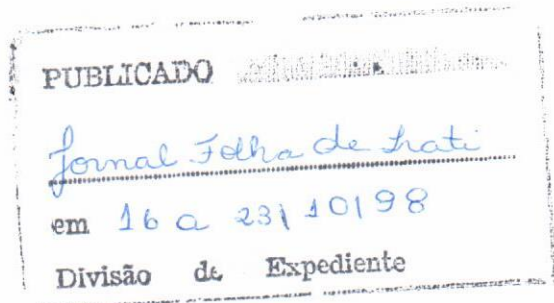 PUBLICADO
Jornal Folha de Irati
em 16 a 23/10/98
Divisão de Expediente